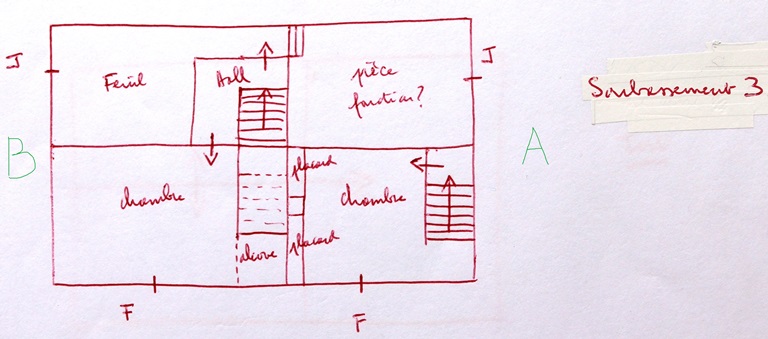 J
J
Fenil
Hall
pièce
fonction?
Soubassement 3
B
A
placard
chambre
chambre
alcove
placard
F
F